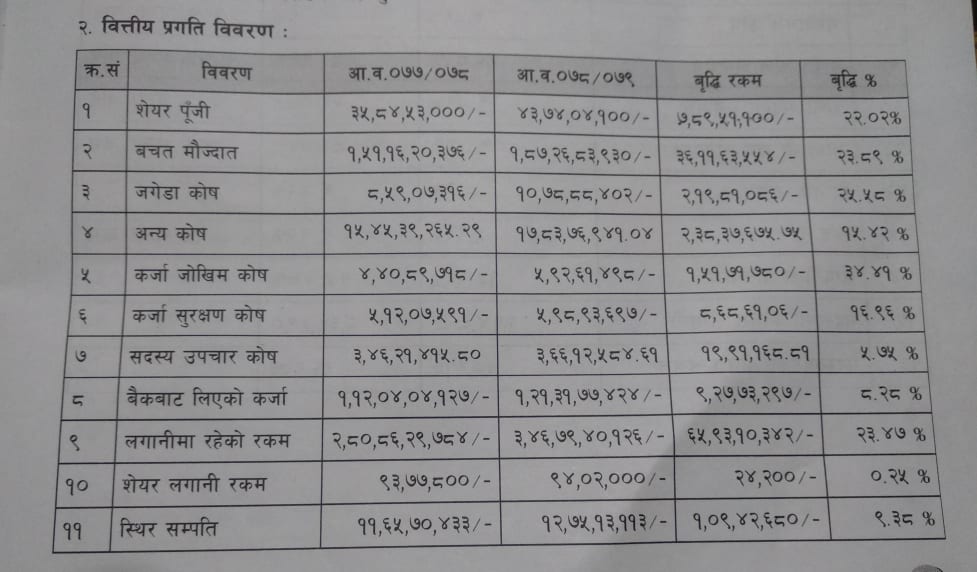 २. वित्तीय प्रगति विवरण :
क्र.सं विवरण आ.व.०७७/०७८ आ.व.०७८/०७९ बृद्धि रकम बृद्धि %
१ शेयर पूँजी ३५,८४,५३,०००/- ४३,७४,०४,१००/- ७,८९,५१,१००/- २२.०२%
२ बचत मौज्दात १,५१,१६,२०,३७६/- १,८७,२६,८३,९३०/- ३६,११,६३,५५४/- २३.८९ %
३ जगेडा कोष ८,५९,०७,३१६/- १०,७८,८८,४०२/- २,१९,८१,०८६/- २५.५८ %
४ अन्य कोष १५,४५,३९,२६५.२९ १७,८३,७६,९४१.०४ २,३८,३७,६७५.७५ १५.४२ %
५ कर्जा जोखिम कोष ४,४०,८९,७१८/- ५,९२,६१,४९८/- १,५१,७१,७८०/- ३४.४१ %
६ कर्जा सुरक्षण कोष ५,१२,०७,५९१/- ५,९८,९३,६९७/- ८,६८,६१,०६/- १६.९६ %
७ सदस्य उपचार कोष ३,४६,२१,४१५.८० ३,६६,१२,५८४.६१ १९,९१,१६८.८१ ५.७५ %
८ बैकबाट लिएको कर्जा १,१२,०४,०४,१२७/- १,२१,३१,७७,४२४/- ९,२७,७३,२९७/- ८.२८ %
९ लगानीमा रहेको रकम २,८०,८६,२९,७८४/- ३,४६,७९,४०,१२६/- ६५,९३,१०,३४२/- २३.४७ %
१० शेयर लगानी रकम ९३,७७,८००/- ९४,०२,०००/- २४,२००/- ०.२५ %
११ स्थिर सम्पति ११,६५,७०,४३३/- १२,७५,१३,११३/- १,०९,४२,६८०/- ९.३८ %